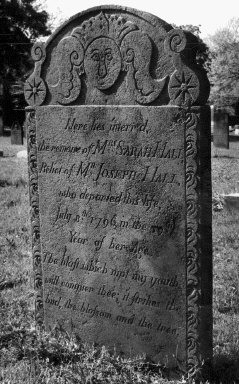 Here lies interr'd,
the remains of Mrs. SARAH HALL,
Relict of Mr. JOSEPH HALL,
who departed this life,
July 8th. 1796, in the
Year of her age.
The blast which nipt my youth
will conquer thee; it strikes the
bud, the blossom and the tree.